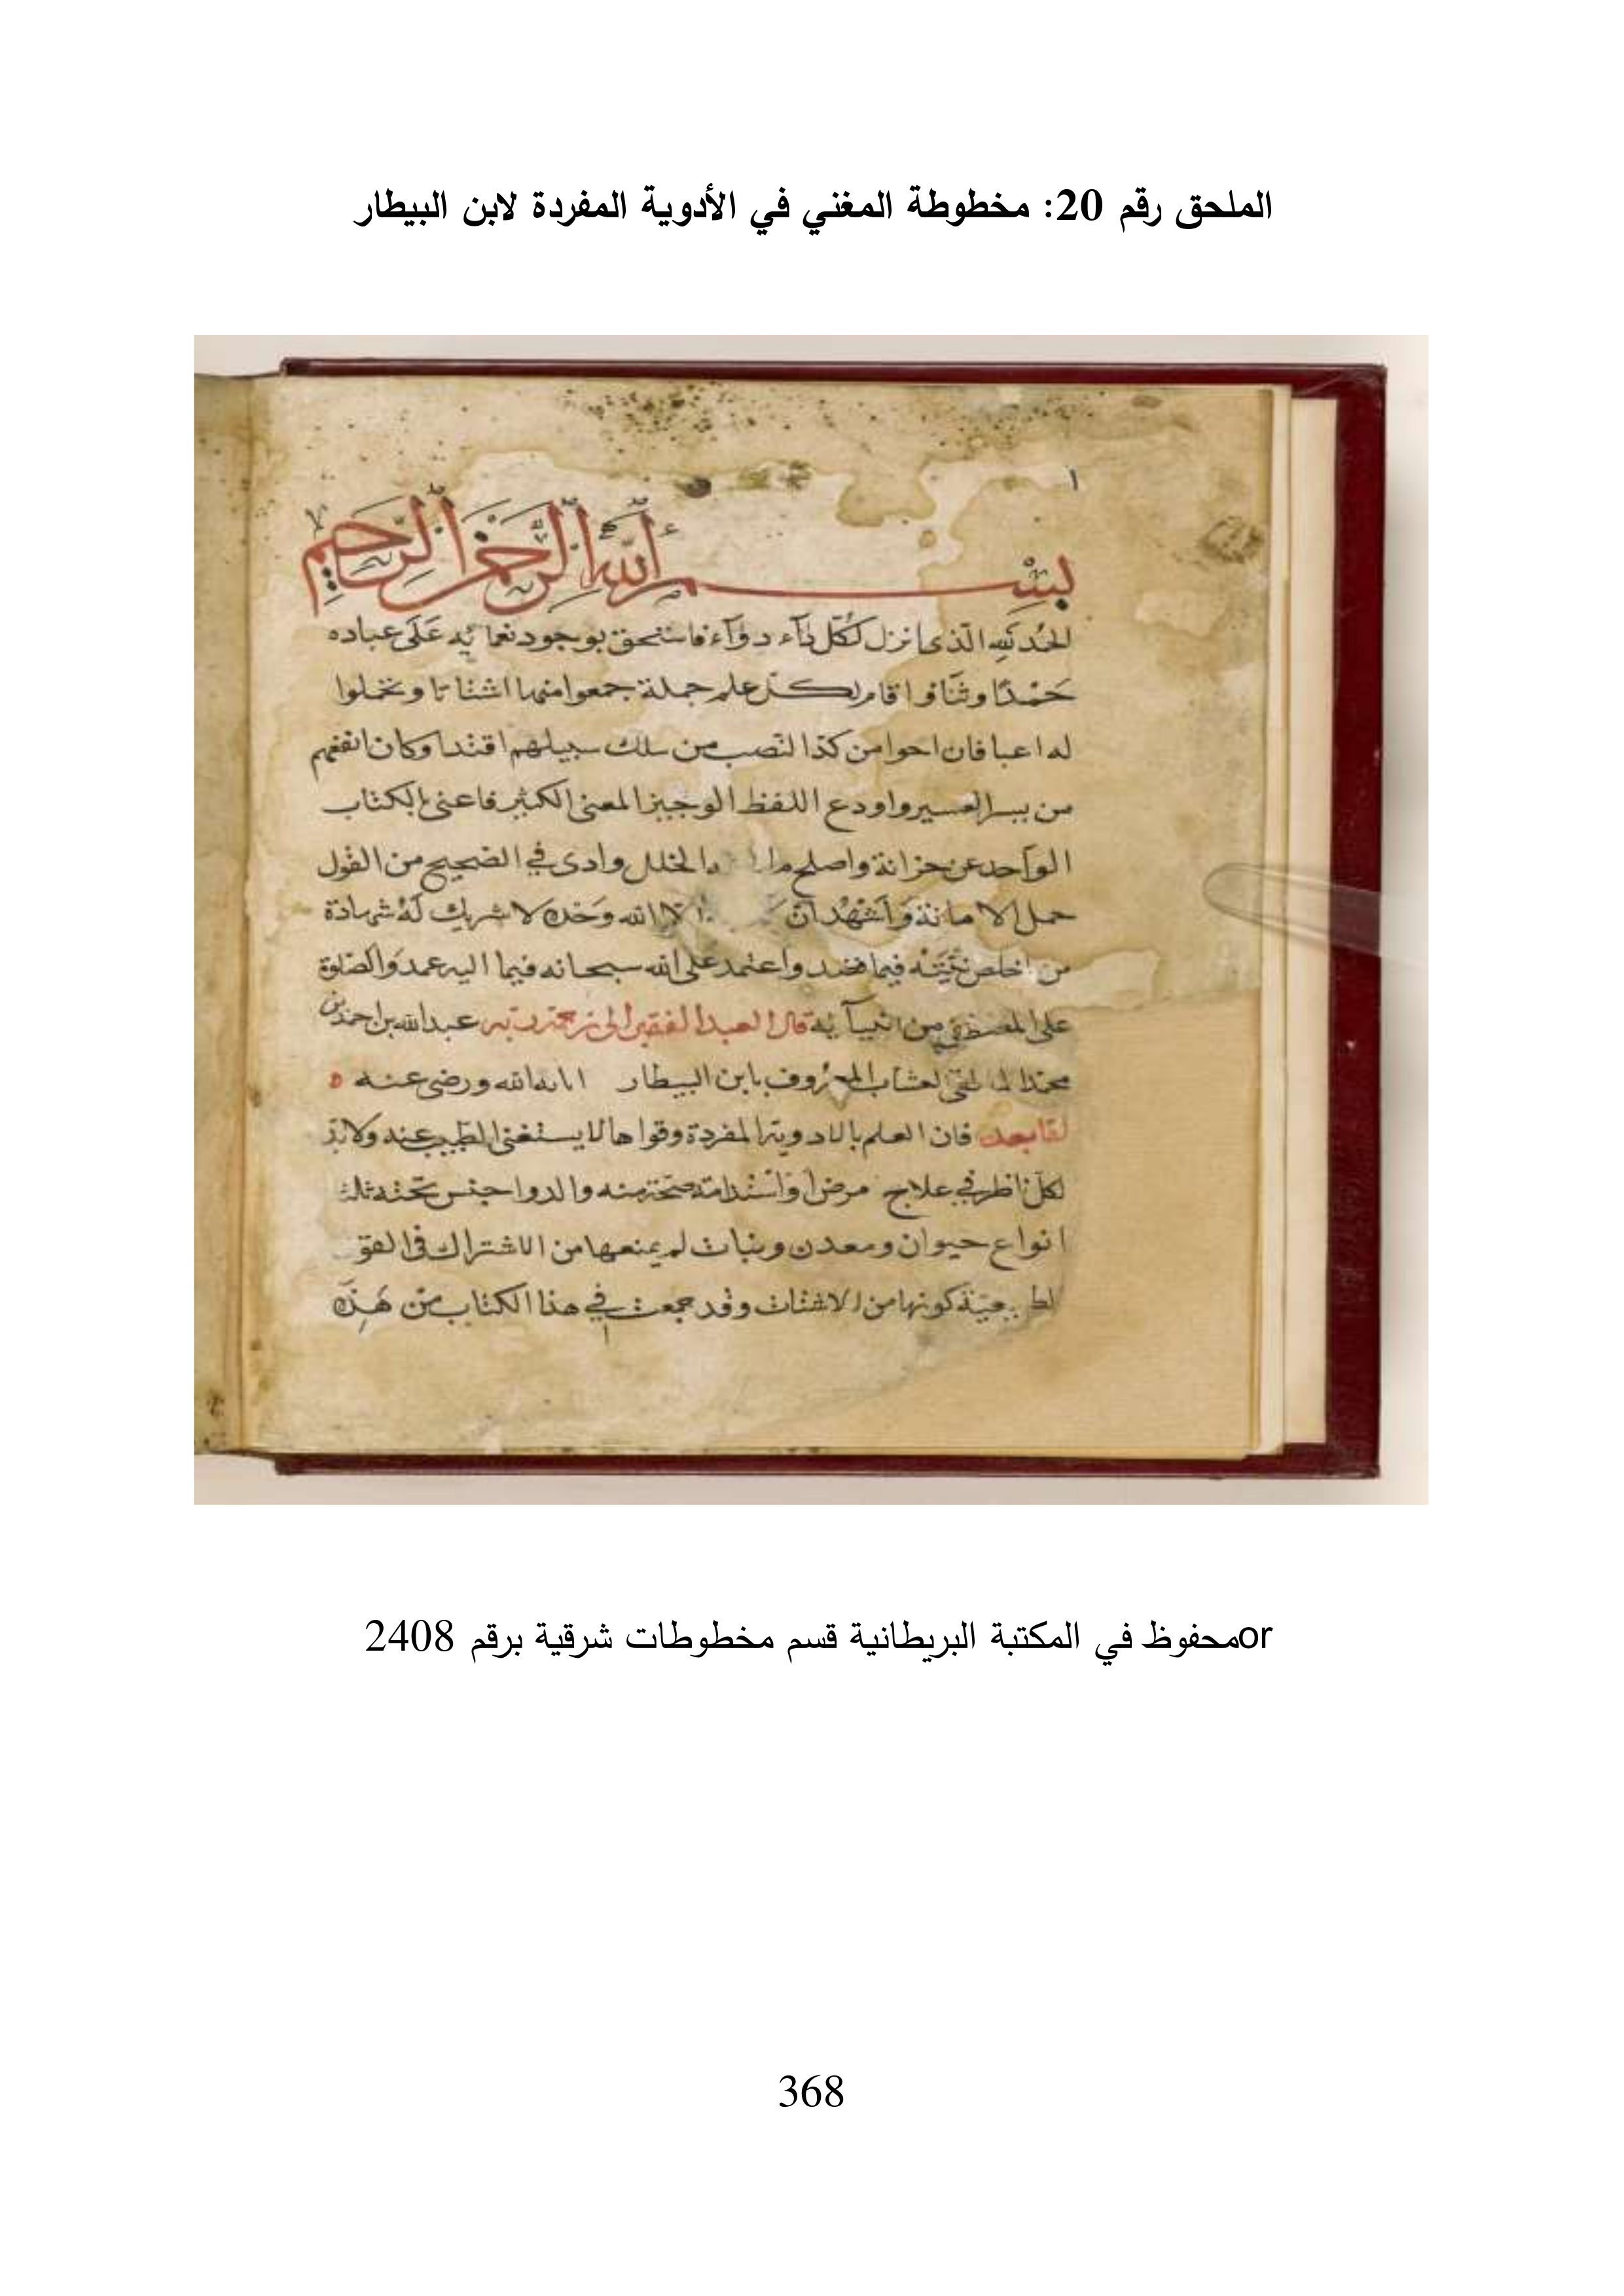 الملحق رقم 20: مخطوطة المغني في الأدوية المفردة لابن البيطار
١
بسم الله الرحمن الرحيم
الحمد لله الذى انزل لكل داء دواء فاستحق بوجود نعمائه على عباده
حمدا وثنا واقام لكل علم جملة جمعوا منها اشتاتا وتحملوا
له اعبا فان احوا من كذا لنصب من سلك سبيلهم اقتدا وكان انفعهم
من يسر العسير واودع اللفظ الوجيز المعنى الكثير فاعنى بالكتاب
الواحد عن خزانة واصلح الخلل وادى في الصحيح من القول
حمل الامانة واشهد ان الا الله وحده لا شريك له شهادة
من اخلص نيته فيما قصد واعتمد على الله سبحانه فيما اليه عمد والصلوة
على المصطفى من انبيآئه قال العبد الفقير الى عبد الله بن احمد بن
محمد المالقى العشاب المعروف بابن البيطار اثابه الله ورضى عنه ه
اما بعد فان العلم بالادوية المفردة وقواها لا يستغنى الطبيب عنه ولا بد
لكل ناظر في علاج مرض او استدامة صحة منه والدوا جنس تحته ثلث
انواع حيوان ومعدن ونبات لم يمنعها من الاشتراك في القو
الطبيعية كونها من الاشتات وقد جمعت في هذا الكتاب من هذه
orمحفوظ في المكتبة البريطانية قسم مخطوطات شرقية برقم 2408
368